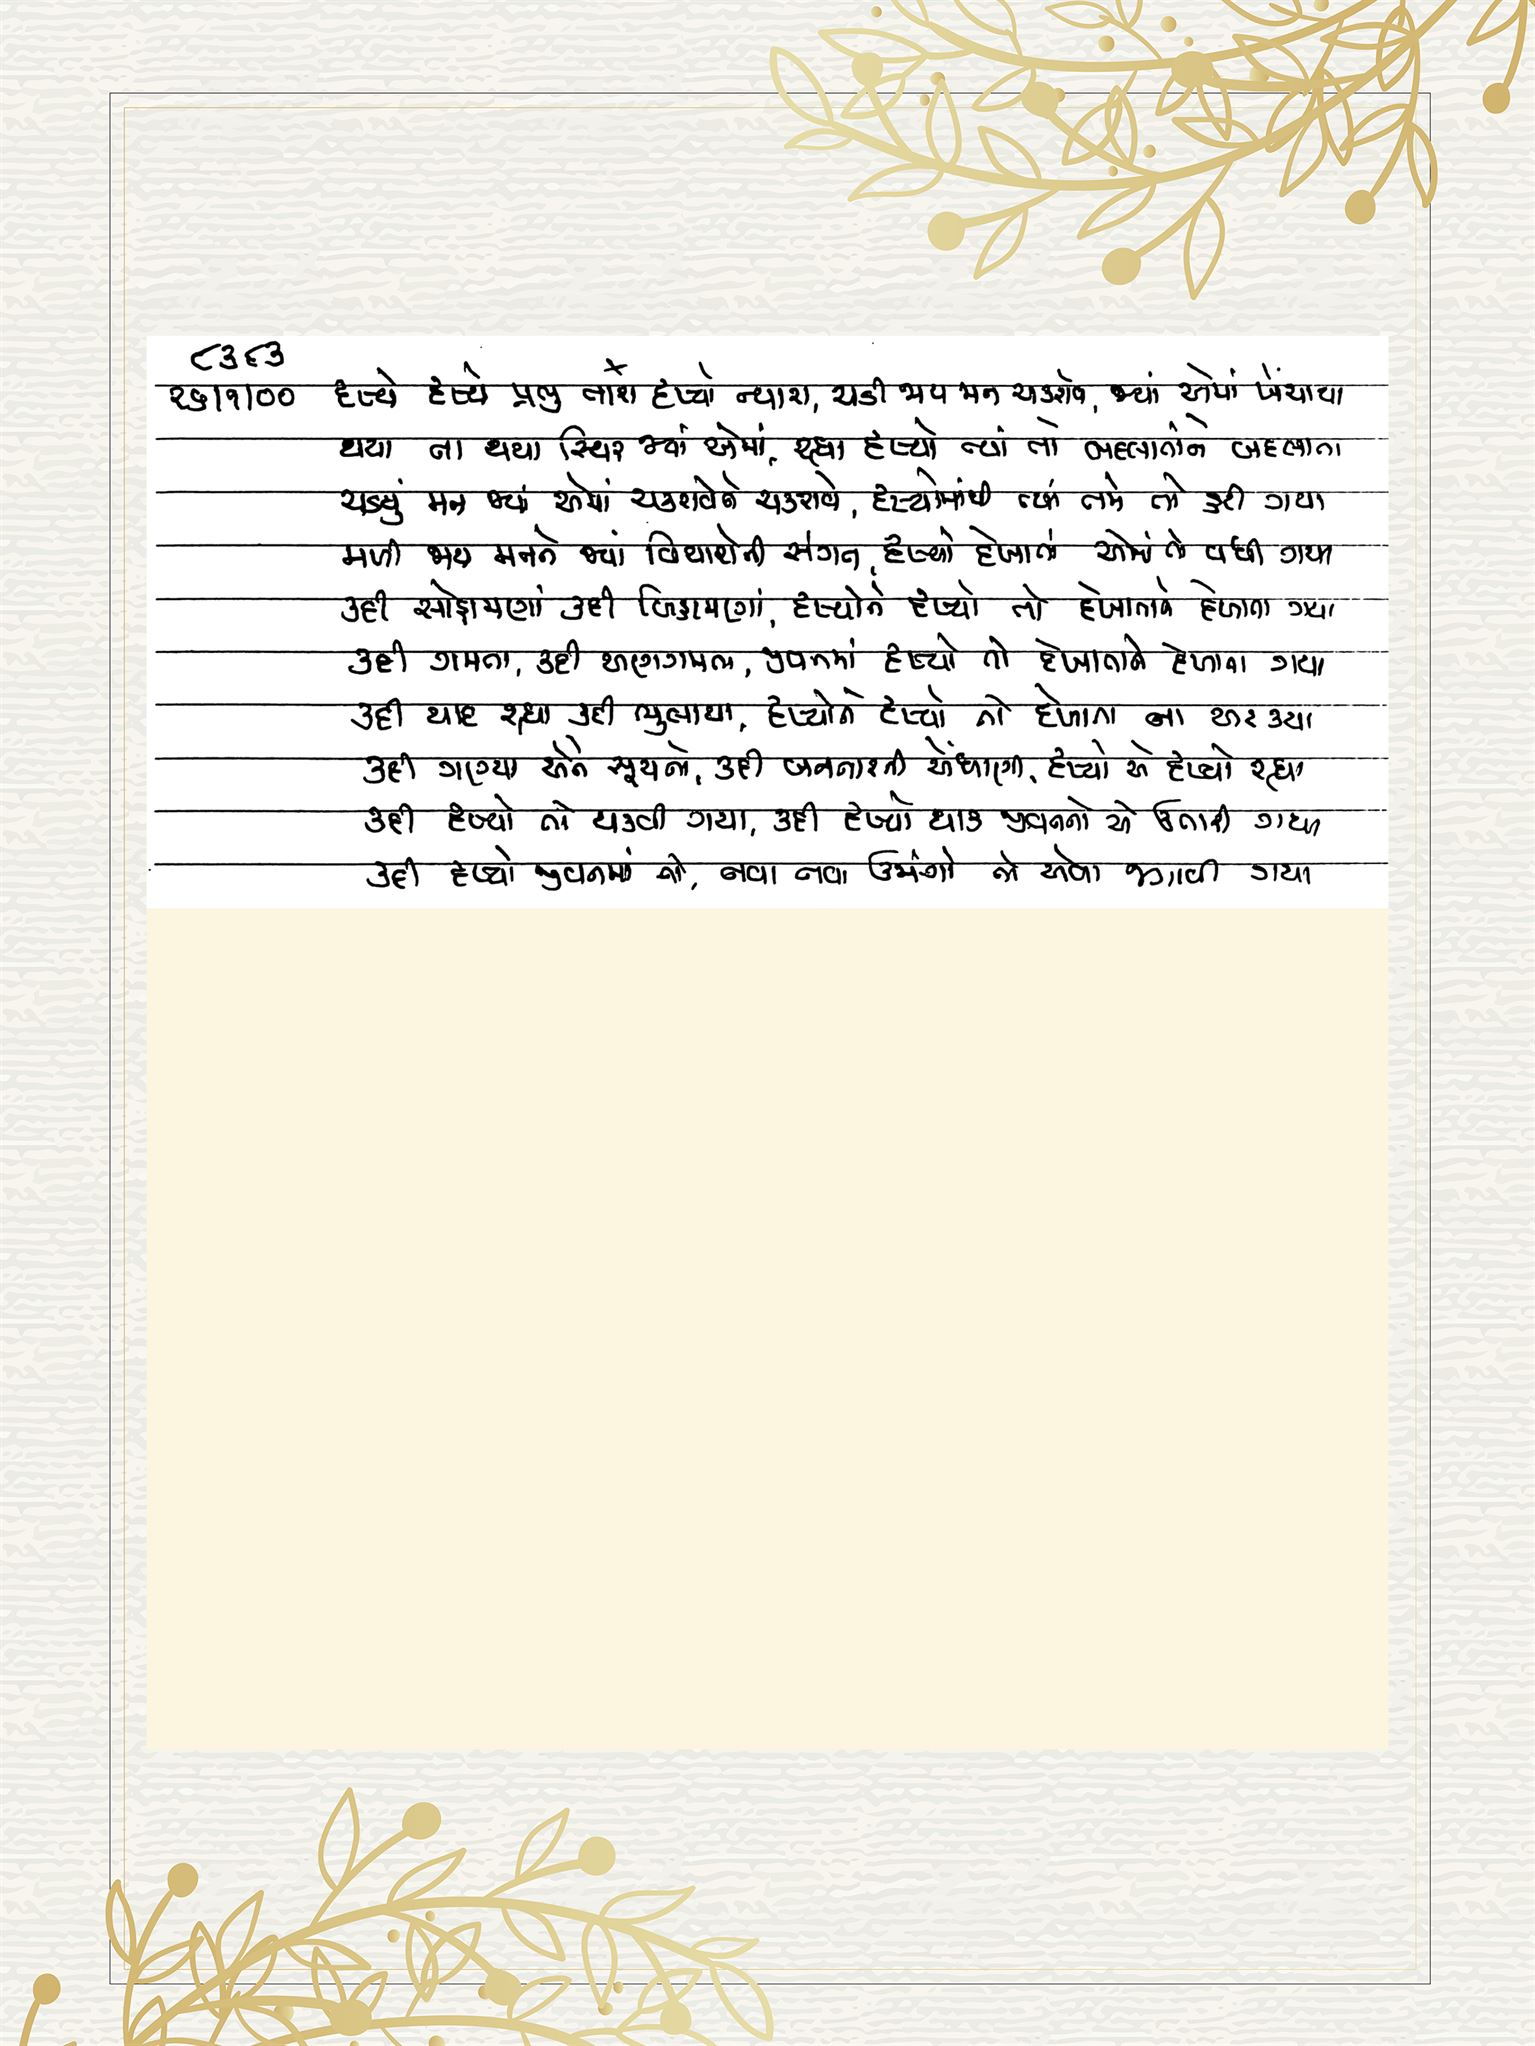 ૮૩૬૩
૨૭/૧/૦૦ દૃશ્યે દૃશ્યે પ્રભુ તારા દૃશ્યો ન્યારા, ચડી જાય મન ચકરાવે, જ્યાં એમાં ખેંચાયા
થયા ના થયા સ્થિર જ્યાં એમાં, રહ્યા દૃશ્યો ત્યાં તો બદલાતાને બદલાતા
ચડયું મન જ્યાં એમાં ચકરાવેને ચકરાવે, દૃશ્યોમાંથી ત્યાં તમે તો હટી ગયા
મળી જાય મનને જ્યાં વિચારોની સંગત, દૃશ્યો દેખાતાં એમાં તો વધી ગયા
કદી સોહામણાં કદી બિહામણાં, દૃશ્યોને દૃશ્યો તો દેખાતાને દેખાતા ગયા
કદી ગમતા, કદી અણગમતા, જીવનમાં દૃશ્યો તો દેખાતાને દેખાતા ગયા
કદી યાદ રહ્યા કદી ભુલાયા, દૃશ્યોને દૃશ્યો તો દેખાતા ના અટકયા
કદી ગણ્યા એને સૂચનો, કદી બનનારની એંધાણી, દૃશ્યો એ દૃશ્યો રહ્યા
કદી દૃશ્યો તો થકવી ગયા, કદી દૃશ્યો થાક જીવનનો એ ઉતારી ગયા
કદી દૃશ્યો જીવનમાં તો, નવા નવા ઉમંગો તો એવા જગાવી ગયા